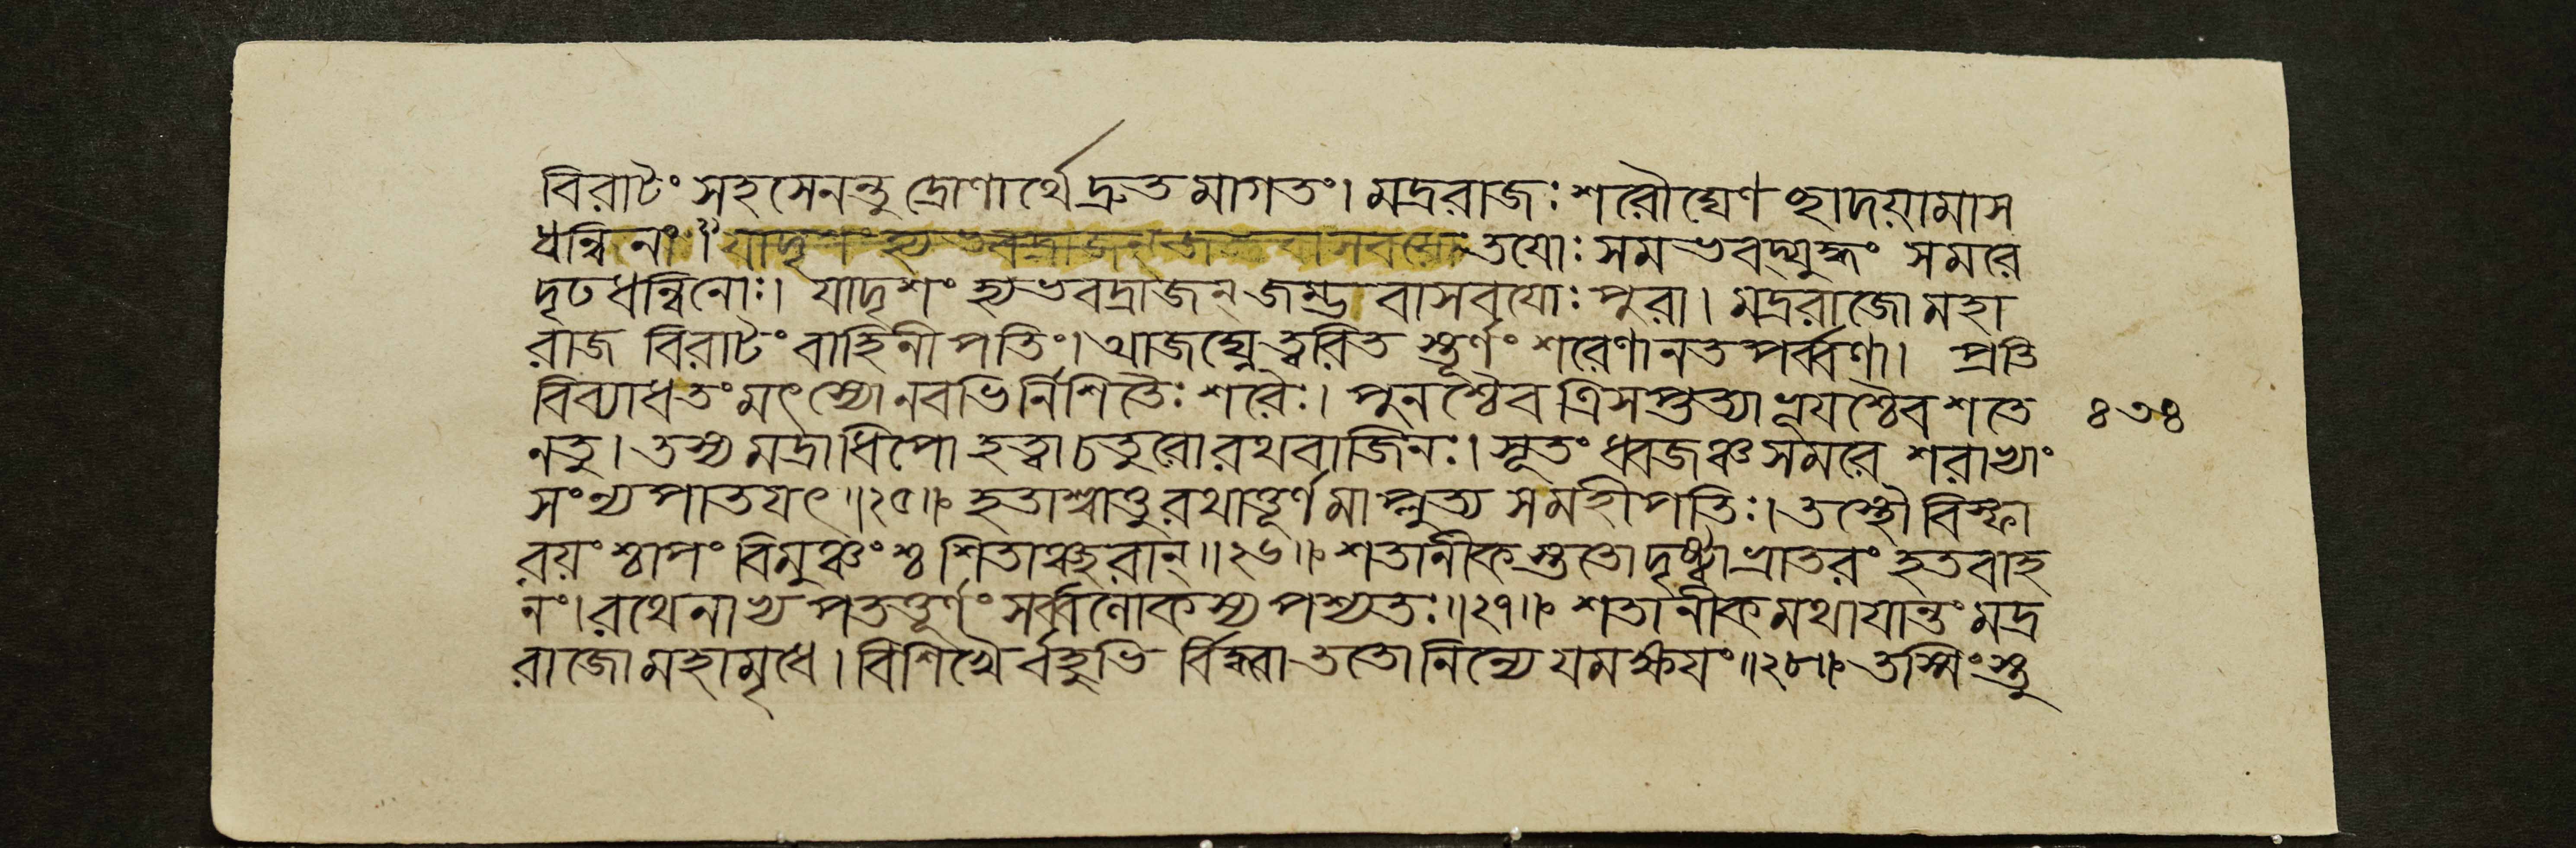 বিরাটং সহসেনন্তু দ্রোণার্থে দ্রুতমাগতং। মদ্ররাজঃ শরৌঘেণ চ্ছাদয়ামাস
ধন্বিনং॥ যাদৃশং হ্যভবদ্রাজন্ জম্ভবাসবয়োঃ তযোঃ সমভবদ্যুদ্ধং সমরে
দৃঢধন্বিনোঃ। যাদৃশং হ্যভবদ্রাজন্ জম্ভ বাসবযোঃ পুরা। মদ্ররাজো মহা
রাজ বিরাটং বাহিনীপতিং। আজঘ্নে ত্বরিত স্তূর্ণং শরেণানতপর্ব্বণা। প্রতি
বিব্যাধ তং মৎস্যো নবভির্নিশিতৈঃ শরৈঃ। পুনশ্চৈব ত্রিসপ্তত্যা ভূযশ্চৈব শতে ৪৩৪
ন তু। তস্য মদ্রাধিপো হত্বা চতুরো রথবাজিনঃ। সূতং ধ্বজঞ্চ সমরে শরাভ্যাং
সংন্যপাতযৎ॥২৫॥ হতাশ্বাত্তু রথাত্তূর্ণমাপ্লুত্য স মহীপতিঃ। তস্থৌ বিস্ফা
রয়ংশ্চাপং বিমুঞ্চংশ্চ শিতাঞ্ছরান্॥২৬॥ শতানীকস্ততো দৃষ্ট্বা ভ্রাতরং হতবাহ
নং। রথেনাভ্যপতত্তূর্ণং সর্ব্বলোকস্য পশ্যতঃ॥২৭॥ শতানীকমথাযান্তং মদ্র
রাজো মহামৃধে। বিশিখৈর্বহুভি র্বিদ্ধা ততো নিন্যে যমক্ষযং॥২৮॥ তস্মিংস্তু